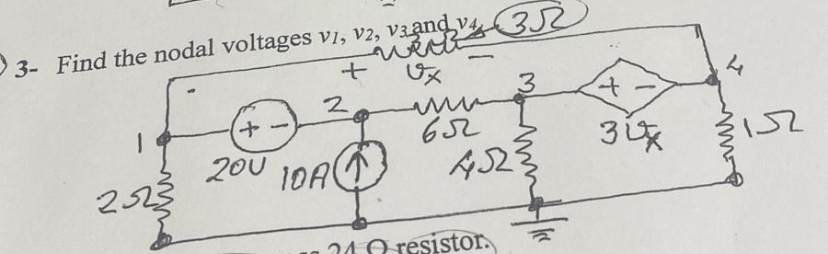 3- Find the nodal voltages v1, v2, v3 and v4
3Ω
+ Vx -
1
2
3
4
+ -
20V
10A
6Ω
+ -
3Vx
2Ω
4Ω
1Ω
24 Ω resistor.